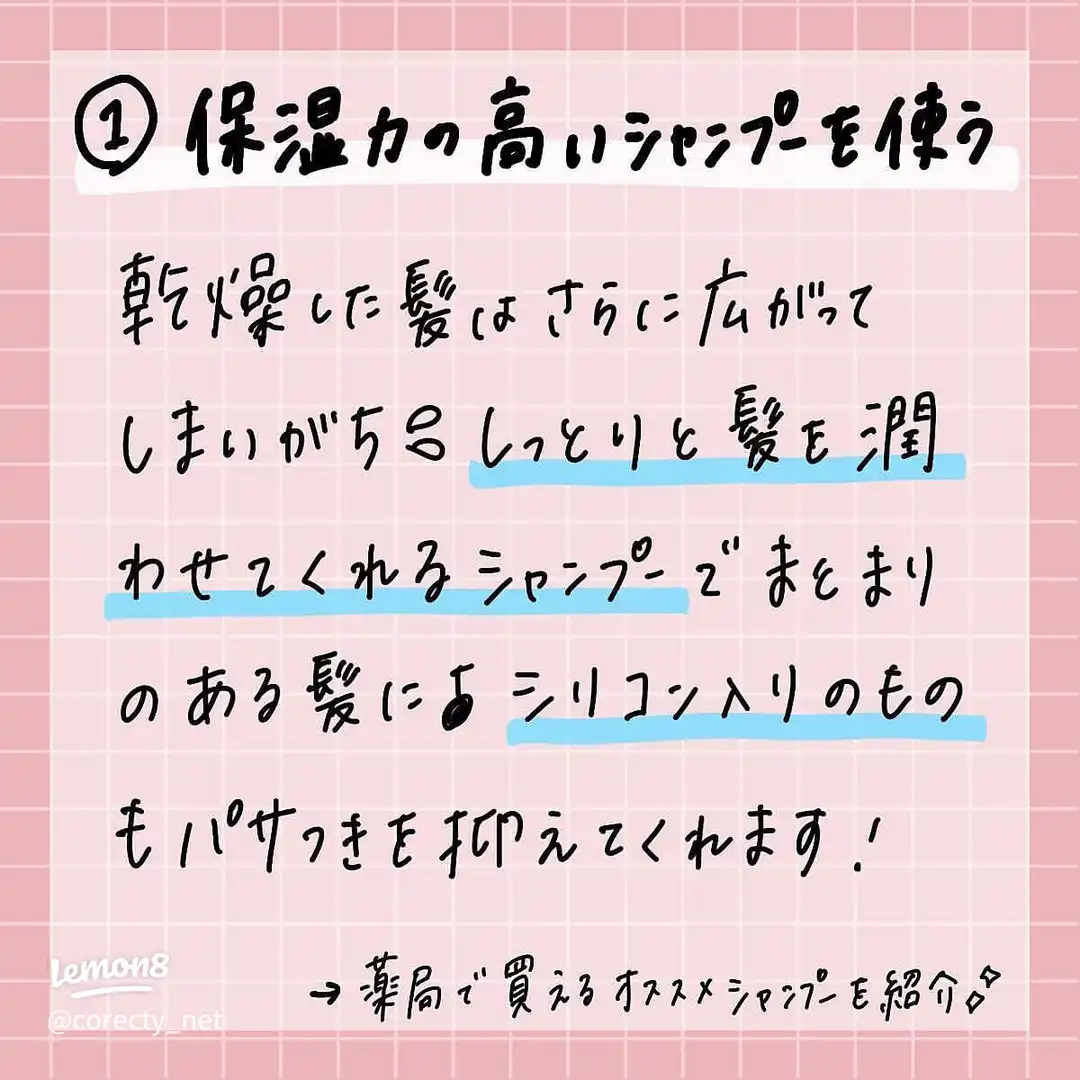 ① 保湿力の高いシャンプーを使う
乾燥した髪はさらに広がって
しまいがち しっとりと髪を潤
わせてくれるシャンプーでまとまり
のある髪に♪シリコン入りのもの
もパサつきを抑えてくれます!
→薬局で買えるオススメシャンプーを紹介
lemon8
@corecty_net